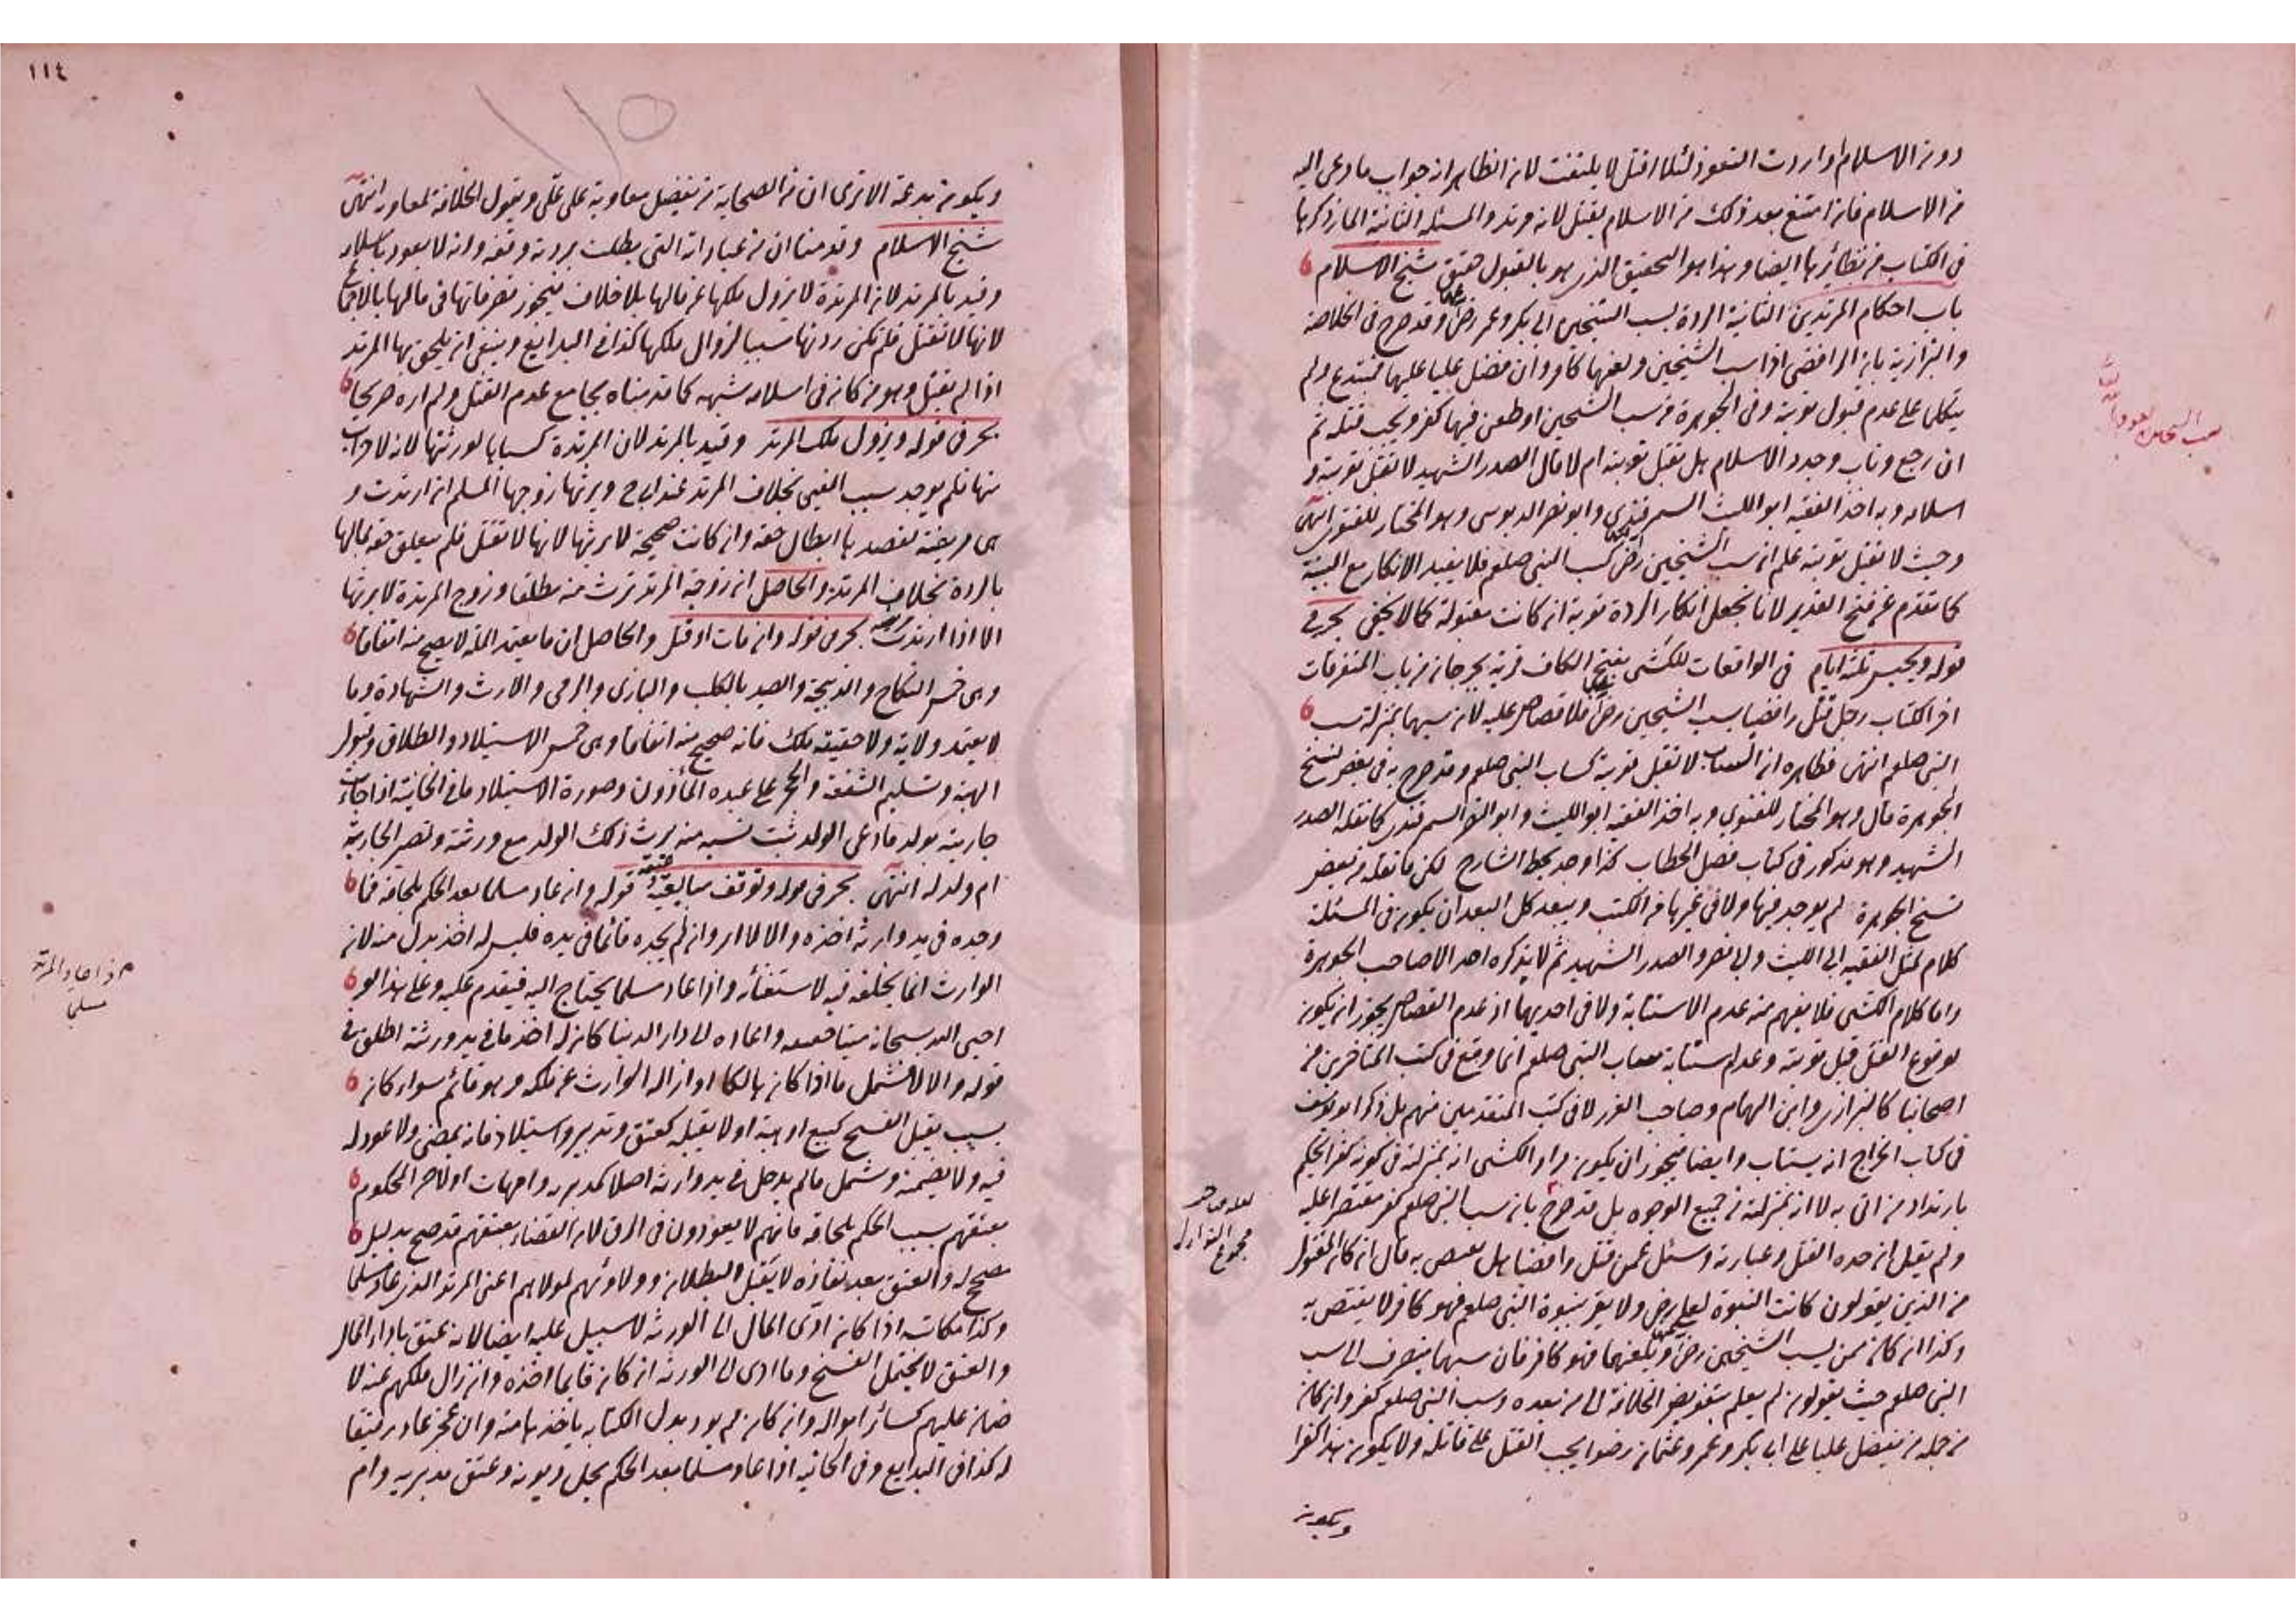 دون الاسلام او اردت التعوذ لئلا اقتل لا يلتفت لان الظاهر انه جواب ما دعى اليه
من الاسلام فان امتنع بعد ذلك من الاسلام يقتل لانه مرتد والمسئلة الثانية المار ذكرها
في الكتاب من نظائرها ايضا وهذا هو التحقيق الذي هو بالقبول حقيق شيخ الاسلام
باب احكام المرتدين الثانية الردة بسب الشيخين ابي بكر وعمر رضى عنهما وقد صرح في الخلاصة
والبزازية بان الرافضي اذا سب الشيخين ولعنهما كافر وان فضل عليا عليهما فمبتدع ولم
يتكلما على عدم قبول توبته وفي الجوهرة من سب الشيخين او طعن فيهما كفر ويجب قتله ثم
ان رجع وتاب وجدد الاسلام هل تقبل توبته ام لا قال الصدر الشهيد لا تقبل توبته و
اسلامه وبه اخذ الفقيه ابو الليث السمرقندي وابو نصر الدبوسي وهو المختار للفتوى انتهى
وحيث لا تقبل توبته علم ان سب الشيخين رضى كسب النبي صلعم فلا يفيد الانكار مع البينة
كما تقدم عن فتح القدير لانا نجعل انكار الردة توبة ان كانت مقبولة كما لا يخفى بحر في
قوله ويحبس ثلثة ايام في الواقعات للكشى بفتح الكاف قرية بجرجان من باب المتفرقات
اخر الكتاب رجل قتل رافضيا يسب الشيخين رضى عنهما فلا قصاص عليه لان سبهما بمنزلة سب
النبي صلعم انتهى فظاهره ان الساب لا تقبل توبته كساب النبي صلعم وقد صرح به في بعض نسخ
الجوهرة قال وهو المختار للفتوى وبه اخذ الفقيه ابو الليث وابو النصر السمرقندي كما نقله الصدر
الشهيد وهو مذكور في كتاب فصل الخطاب كذا وجد بخط الشارح لكن ما نقله من بعض
نسخ الجوهرة لم يوجد فيها ولا في غيرها من الكتب ويبعد كل البعد ان يكون في المسئلة
كلام لمثل الفقيه ابي الليث وابي نصر والصدر الشهيد ثم لا يذكره احد الا صاحب الجوهرة
واما كلام الكشى فلا يفهم منه عدم الاستتابة ولا في احديهما اذ عدم القصاص يجوز ان يكون
لوقوع القتل قبل توبته وعدم استتابة ساب النبي صلعم انما وقع في كتب المتأخرين من
اصحابنا كالبزازى وابن الهمام وصاحب الغرر لا في كتب المتقدمين منهم بل ذكر ابو يوسف
في كتاب الخراج انه يستتاب وايضا فيجوز ان يكون مراد الكشى انه بمنزلته في كونه كفرا لحكم
بارتداد من اتى به لا انه بمنزلته من جميع الوجوه بل قد صرح بان سب النبي صلعم كفر مقتصرا عليه
ولم يقل ان حده القتل وعبارته وسئل عمن قتل رافضيا هل يقتص به قال ان كان المقتول
من الذين يقولون كانت النبوة لعلي رضى ولا يقر بنبوة النبي صلعم فهو كافر لا يقتص به
وكذا ان كان ممن يسب الشيخين رضى عنهما ويلعنهما فهو كافر فان سبهما ينصرف الى سب
النبي صلعم حيث يقولون لم يعلم بتفويض الخلافة الى من بعده وسب النبي صلعم كفر وان كان
من جملة من يفضل عليا على ابي بكر وعمر وعثمان رضوا يجب القتل على قاتله ولا يكون هذا كفرا
ويكون
سب الشيخين
مجموع النوازل
١١٤
١١٥
ويكون بدعة الا ترى ان من الصحابة من يفضل معاوية على علي ويقول الخلافة لمعاوية انتهى
شيخ الاسلام وقدمنا ان من عباراته التي بطلت بردته وقفه وانه لا يعود باسلامه
وقيد بالمرتد لان المرتدة لا يزول ملكها عن مالها بلا خلاف فيجوز تصرفاتها في مالها بالاجماع
لانها لا تقتل فلم تكن ردتها سببا لزوال ملكها كذا في البدايع وينبغي ان يلحق بها المرتد
اذا لم يقتل وهو من كان في اسلامه شبهة كما قدمناه بجامع عدم القتل ولم اره صريحا
بحر في قوله ويزول ملك المرتد وقيد بالمرتد لان المرتدة كسبها لورثتها لانه لا حراب
منها فلم يوجد سبب الفيئ بخلاف المرتد عند ابي ح ويرثها زوجها المسلم ان ارتدت و
هي مريضة لقصدها ابطال حقه وان كانت صحيحة لا يرثها لانها لا تقتل فلم يتعلق حقه بمالها
بالردة بخلاف المرتد والحاصل ان زوجة المرتد ترث منه مطلقا وزوج المرتدة لا يرثها
الا اذا ارتدت مريضة بحر في قوله وان مات او قتل والحاصل ان ما يعتمد الملة لا يصح منه اتفاقا
وهي خمس النكاح والذبيحة والصيد بالكلب والبازى والرمى والارث والشهادة وما
لا يعتمد ولاية ولا حقيقة ملك فانه صحيح منه اتفاقا وهي خمس الاستيلاد والطلاق وقبول
الهبة وتسليم الشفعة والحجر على عبده المأذون وصورة الاستيلاد ما في الخانية اذا جاءت
جاريته بولد فادعى الولد ثبت نسبه منه يرث ذلك الولد مع ورثته وتصير الجارية
ام ولد له انتهى بحر في قوله وتوقف مبايعته وعتقه قوله وان عاد مسلما بعد الحكم بلحاقه فما
وجده في يد وارثه اخذه والا لا اى وان لم يجده قائما في يده فليس له اخذ بدل منه لان
الوارث انما يخلفه فيه لاستغنائه واذا عاد مسلما يحتاج اليه فيقدم عليه وعلى هذا لو
احيى الله سبحانه ميتا حقيقة واعاده الى دار الدنيا كان له اخذ ما في يد ورثته اطلق في
قوله والا لا فشمل ما اذا كان هالكا او ازاله الوارث عن ملكه وهو قائم سواء كان
بسبب يقبل الفسخ كبيع او هبة او لا يقبله كعتق وتدبير واستيلاد فانه يمضى ولا عود له
فيه ولا يضمنه وشمل ما لم يدخل في يد وارثه اصلا كمدبريه وامهات اولاده المحكوم
بعتقهم بسبب الحكم بلحاقه فانهم لا يعودون في الرق لان القضاء بعتقهم قد صح بدليل
مصحح له والعتق بعد نفاذه لا يقبل البطلان وولاؤهم لمولاهم اعني المرتد الذي عاد مسلما
وكذا مكاتبه اذا كان ادى المال الى الورثة لا سبيل عليه ايضا لانه عتق باداء المال
والعتق لا يحتمل الفسخ وما ادى الى الورثة ان كان قايما اخذه وان زال ملكهم عنه لا
ضمان عليهم كسائر امواله وان كان لم يود بدل الكتابة ياخذها منه وان عجز عاد رقيقا
له كذا في البدايع وفي الخانية اذا عاد مسلما بعد الحكم بحل ديونه وعتق مدبريه وام
اذا عاد المرتد
مسلما